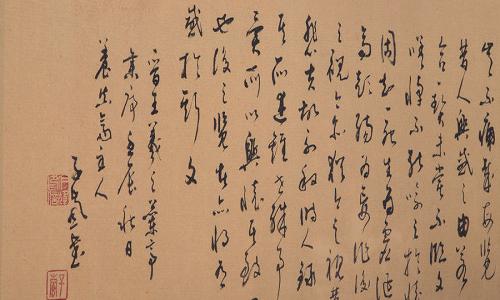 豈不痛哉每覽
昔人興感之由若
合一契未嘗不臨文
嗟悼不能喻之於懷
固知一死生為虛誕
齊彭殤為妄作後
之視今亦猶今之視昔
悲夫故列敘時人錄
其所述雖世殊事
異所以興懷其致
也後之覽者亦將有
感於斯文
晉王羲之蘭亭
集序壬辰秋日
養齋主人
書